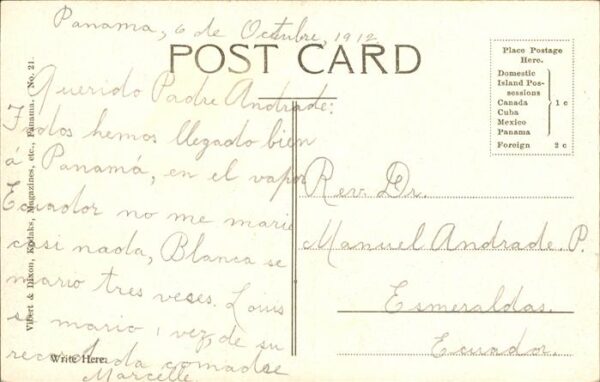 Panama, 6 de Octubre, 1912
POST CARD
Place Postage
Here.
Domestic
Island Pos-
sessions
Canada
Cuba
Mexico
Panama
1 c
Foreign 2 c
Querido Padre Andrade:
Todos hemos llegado bien
á Panamá, en el vapor
Ecuador no me marie
casi nada, Blanca se
mario tres veses. Louis
se mario 1 vez, de su
recordada comadre
Marcelle
Rev. Dr.
Manuel Andrade. P.
Esmeraldas.
Ecuador.
Write Here.
Vibert & Dixon, Kodaks, Magazines, etc., Panama. No. 21.